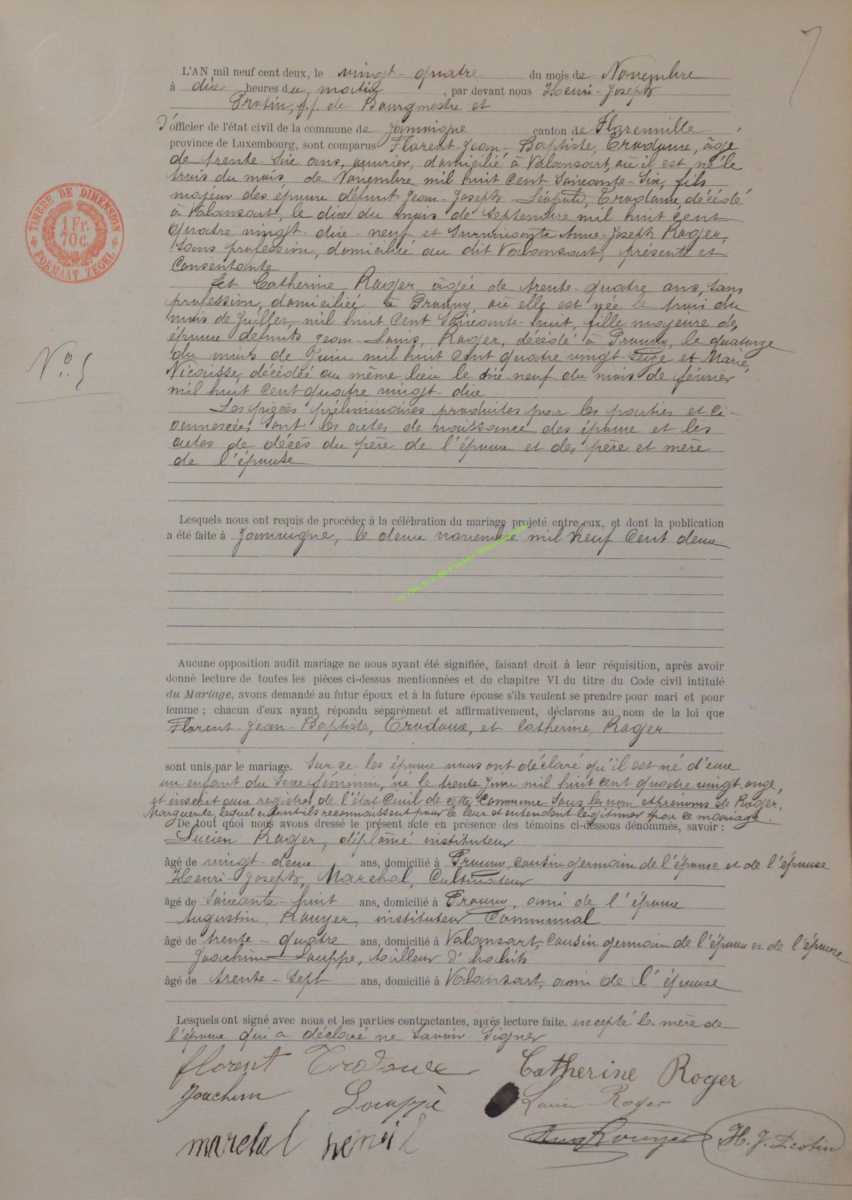 7
L'AN mil neuf cent deux, le vingt-quatre du mois de Novembre
à dix heures du matin, par devant nous Henri-Joseph
f.f. de Bourgmestre et
d'officier de l'état civil de la commune de Jamoigne canton de Florenville
province de Luxembourg, sont comparus Florent-Jean-Baptiste, Trodoux, âgé
de trente six ans, ouvrier, domicilié à Valansart, où il est né le
trois du mois de Novembre mil huit cent soixante-six, fils
majeur des époux défunt Jean-Joseph Trodoux, décédé
à Valansart, le dix du mois de Septembre mil huit cent
quatre vingt dix-neuf et survivante Anne-Joseph Roger,
sans profession, domiciliée au dit Valansart, présente et
Consentante
Et Catherine Roger, âgée de trente-quatre ans, sans
profession, domiciliée à Prouvy, où elle est née le trois du
mois de Juillet, mil huit cent soixante huit, fille majeure des
époux défunts Jean-Louis, Roger, décédé à Prouvy, le quatorze
du mois de Juin mil huit cent quatre vingt et Marie
décédée au même lieu le dix neuf du mois de février
mil huit cent quatre vingt dix
Les pièces préliminaires produites par les parties et ci-
annexées, sont les actes de naissance des époux et les
actes de décès du père de l'époux et des père et mère
de l'épouse
TIMBRE DE DIMENSION
1 Fr. 70 c.
FORMAAT ZEGEL
No. 5
Lesquels nous ont requis de procéder à la célébration du mariage projeté entre eux, et dont la publication
a été faite à Jamoigne, le deux novembre mil neuf cent deux
Aucune opposition audit mariage ne nous ayant été signifiée, faisant droit à leur réquisition, après avoir
donné lecture de toutes les pièces ci-dessus mentionnées et du chapitre VI du titre du Code civil intitulé
du Mariage, avons demandé au futur époux et à la future épouse s'ils veulent se prendre pour mari et pour
femme ; chacun d'eux ayant répondu séparément et affirmativement, déclarons au nom de la loi que
Florent-Jean-Baptiste, Trodoux, et Catherine, Roger
sont unis par le mariage. Sur ce les époux nous ont déclaré qu'il est né d'eux
un enfant du sexe féminin, né le trente Juin mil huit cent quatre vingt onze,
et inscrit aux registres de l'état Civil de cette Commune sous les nom et prénoms de Roger,
Marguerite, lequel enfant ils reconnaissent pour le leur et entendent légitimer par ce mariage.
De tout quoi nous avons dressé le présent acte en présence des témoins ci-dessous dénommés, savoir :
Lucien Roger, diplômé instituteur
âgé de vingt-deux ans, domicilié à Prouvy, cousin germain de l'époux et de l'épouse
Henri-Joseph, Maréchal, Cultivateur
âgé de soixante-huit ans, domicilié à Prouvy, ami de l'époux
Augustin, Rouyer, instituteur Communal
âgé de trente-quatre ans, domicilié à Valansart, cousin germain de l'époux et de l'épouse
Joachim Louppe, tailleur d'habits
âgé de trente-sept ans, domicilié à Valansart, ami de l'épouse
Lesquels ont signé avec nous et les parties contractantes, après lecture faite. excepté la mère de
l'époux qui a déclaré ne savoir signer
florent Trodoux Catherine Roger
Joachim Louppe Roger
marchal Rouyer H. J.